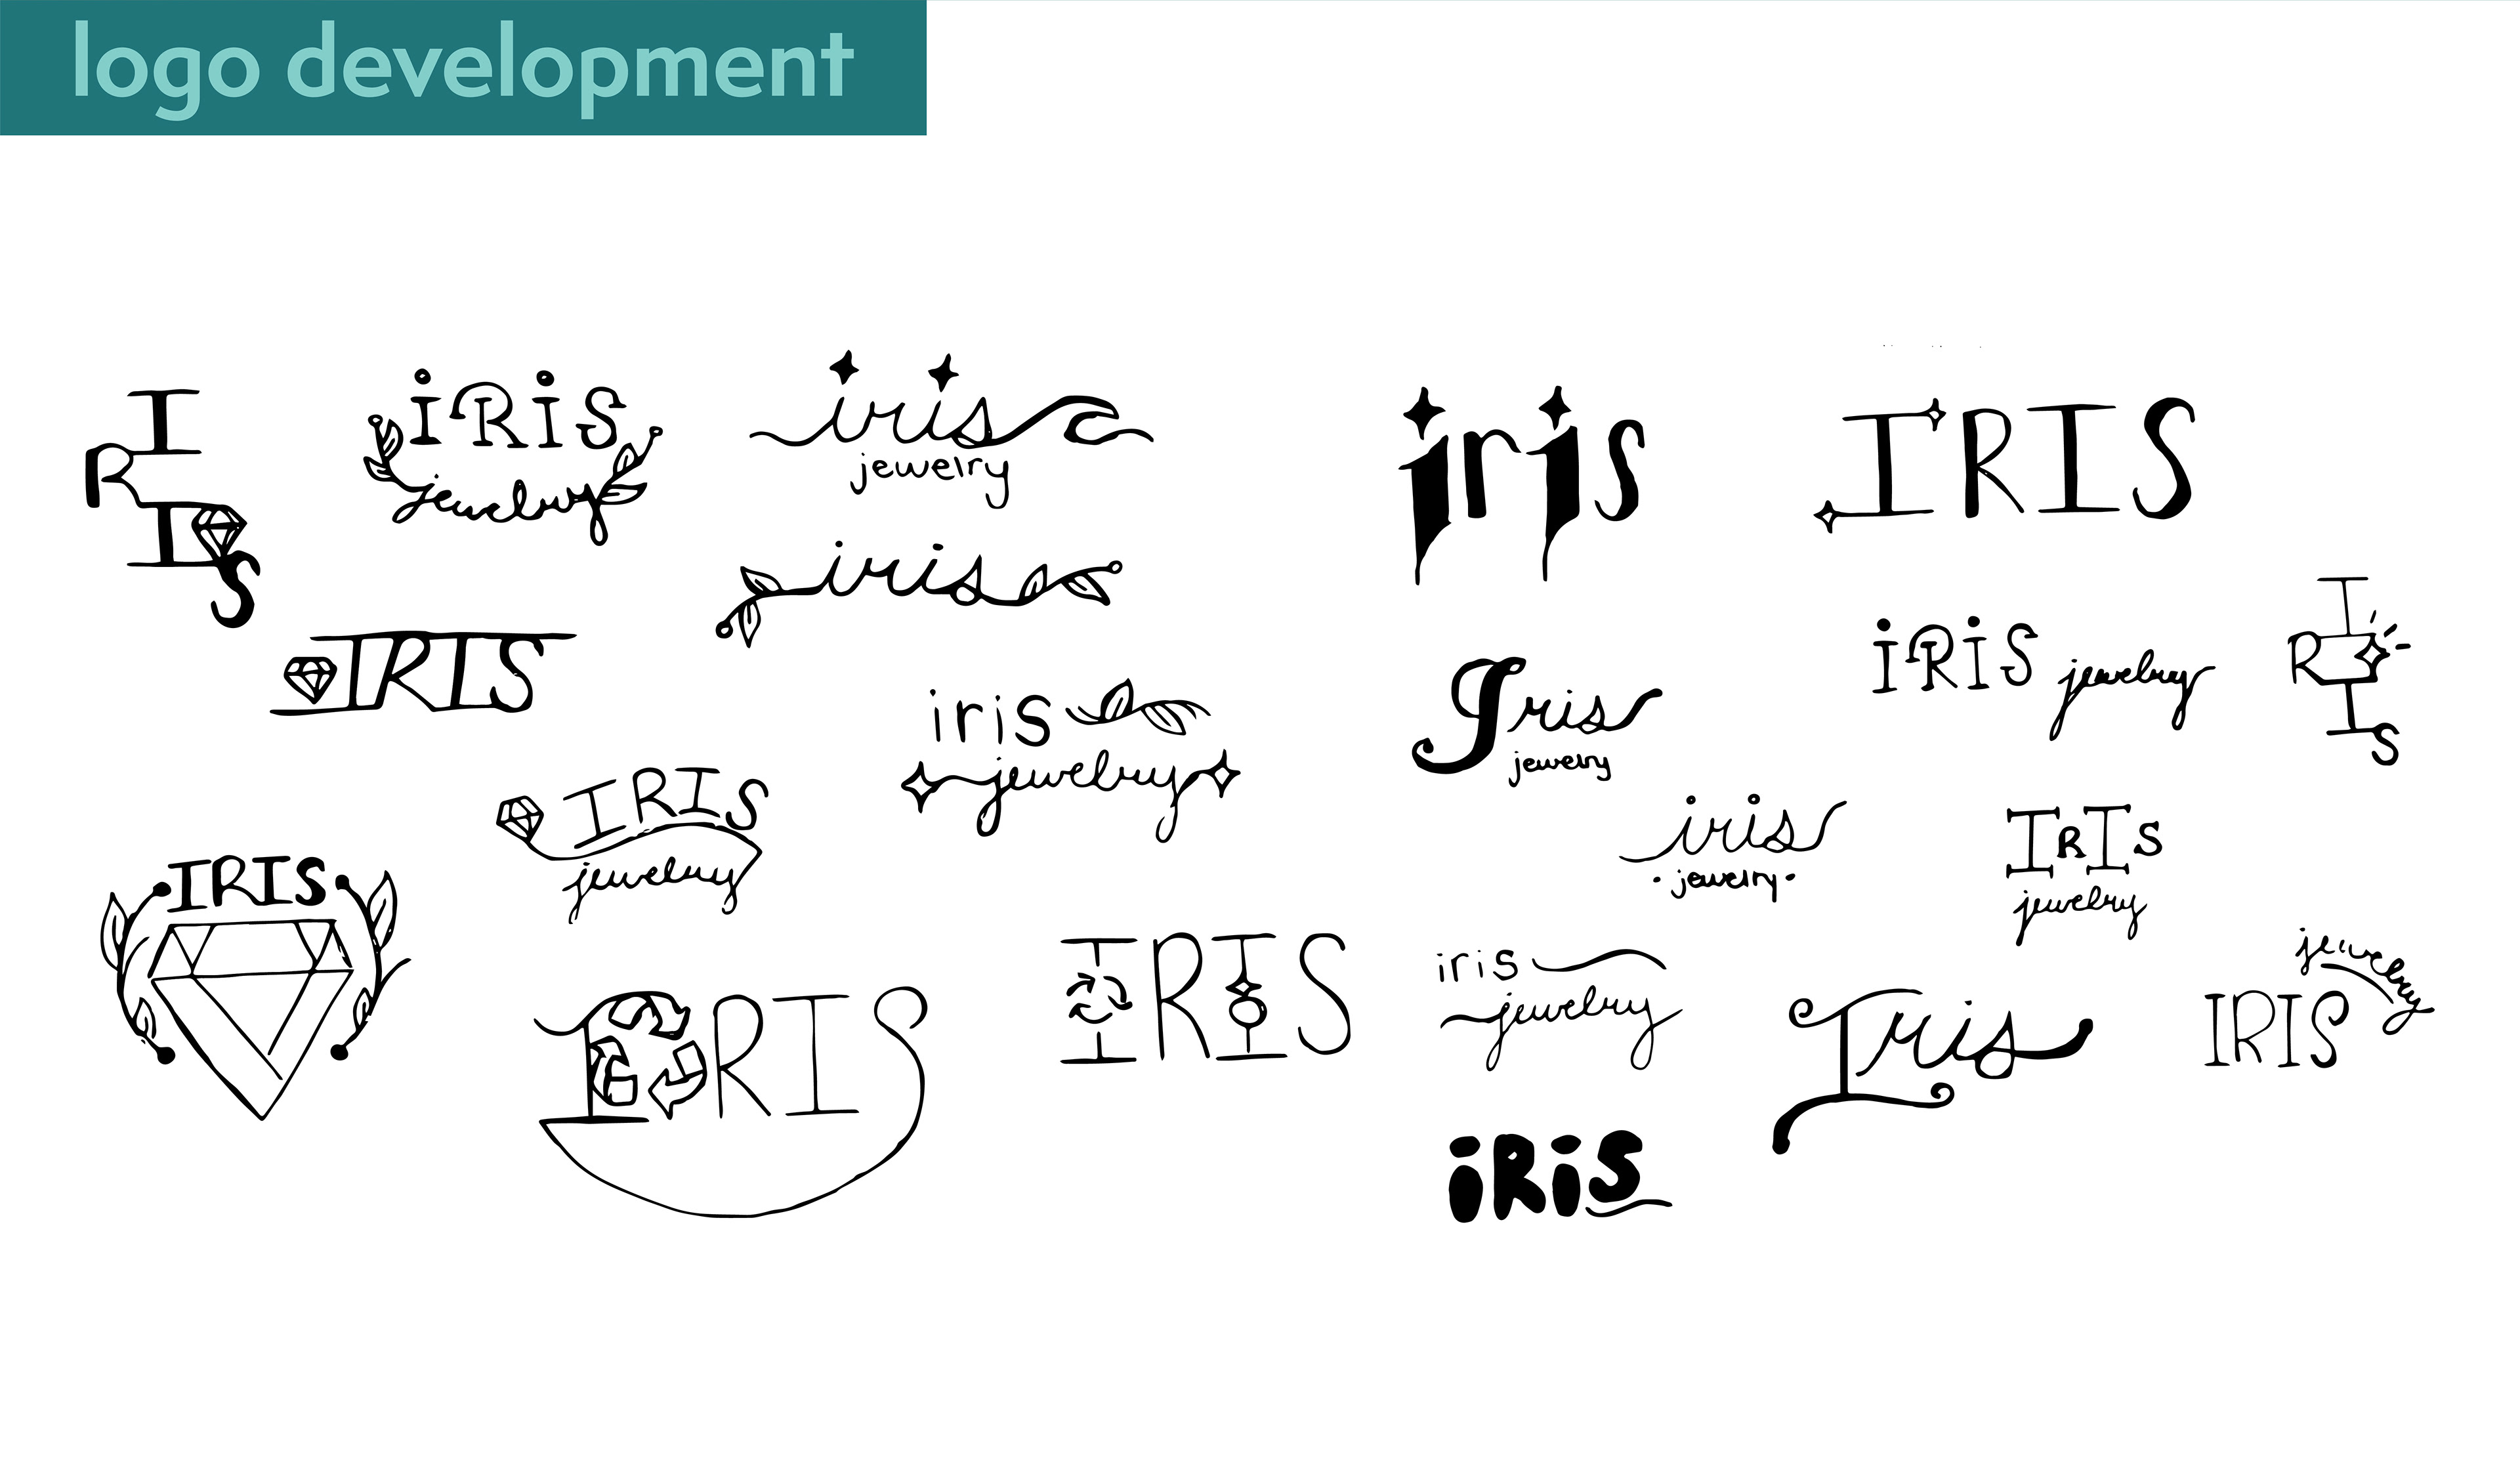 logo development
IRIS
iRiS
jewelry
iris
jewelry
iris
IRIS
iRiS
IRIS
jewelry
iris
jewelry
Iris
jewelry
iris
jewelry
iris
IRIS
iRiS
jewelry
IRIS
IrIs
jewelry
IRIS
IRIS
IRIS
iris
jewelry
iRis
Iris
jewelry
IRIS